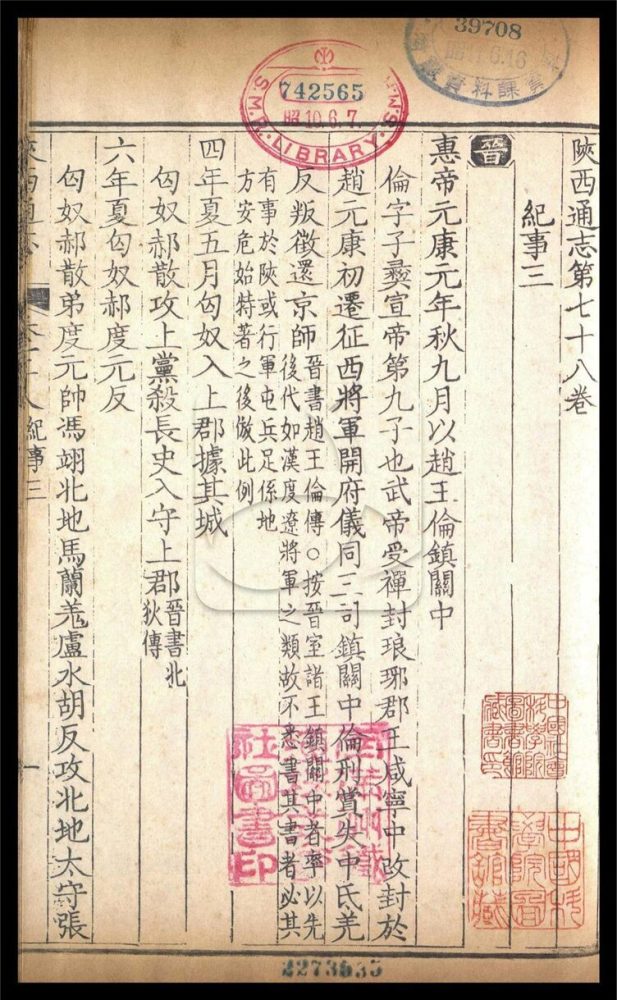 陝西通志第七十八卷
紀事三
晉
惠帝元康元年秋九月以趙王倫鎮關中
倫字子彝宣帝第九子也武帝受禪封琅琊郡王咸寧中改封於
趙元康初遷征西將軍開府儀同三司鎮關中倫刑賞失中氐羌
反叛徵還京師晉書趙王倫傳○按晉室諸王鎮關中者率以先
後代如漢度遼將軍之類故不悉書其書者必其
有事於陝或行軍屯兵足係地
方安危始特著之後倣此例
四年夏五月匈奴入上郡據其城
匈奴郝散攻上黨殺長史入守上郡晉書北
狄傳
六年夏匈奴郝度元反
匈奴郝散弟度元帥馮翊北地馬蘭羌盧水胡反攻北地太守張
陝西通志
紀事三
一
39708
742565
昭10.6.7.
S.M.R. LIBRARY
2273535